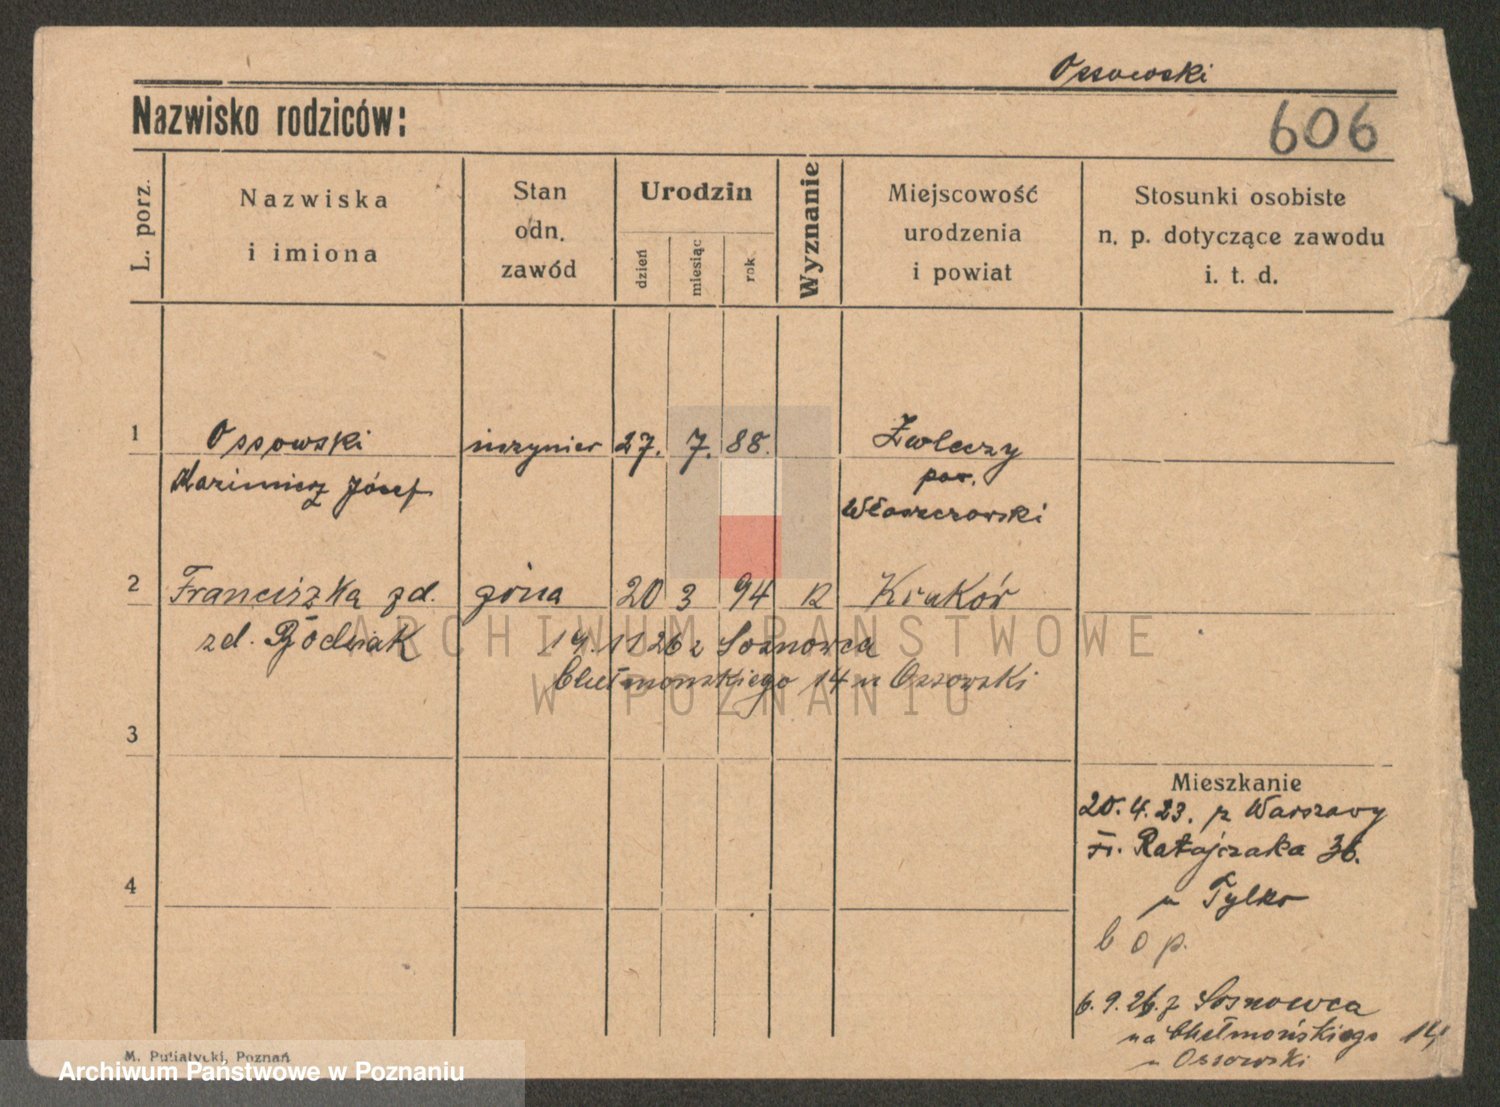 Ossowski
Nazwisko rodziców:
606
L. porz.
Nazwiska
i imiona
Stan
odn.
zawód
Urodzin
dzień
miesiąc
rok.
Wyznanie
Miejscowość
urodzenia
i powiat
Stosunki osobiste
n. p. dotyczące zawodu
i. t. d.
1
Ossowski inżynier 27. 7. 88.
Kazimierz Józef
pow.
Włoszczowski
2 Franciszka zd. żona 20 3 94 Kraków
zd.
19. 11 26 z Sosnowca
Chełmońskiego 14 u Ossowski
ARCHIWUM PAŃSTWOWE
W POZNANIU
3
Mieszkanie
20. 4. 23. z Warszawy
Fr. Ratajczaka 36.
u Tylko
b o p.
4
6. 9. 26. z Sosnowca
na Chełmońskiego 14
u Ossowski
M. Putiatycki, Poznań
Archiwum Państwowe w Poznaniu